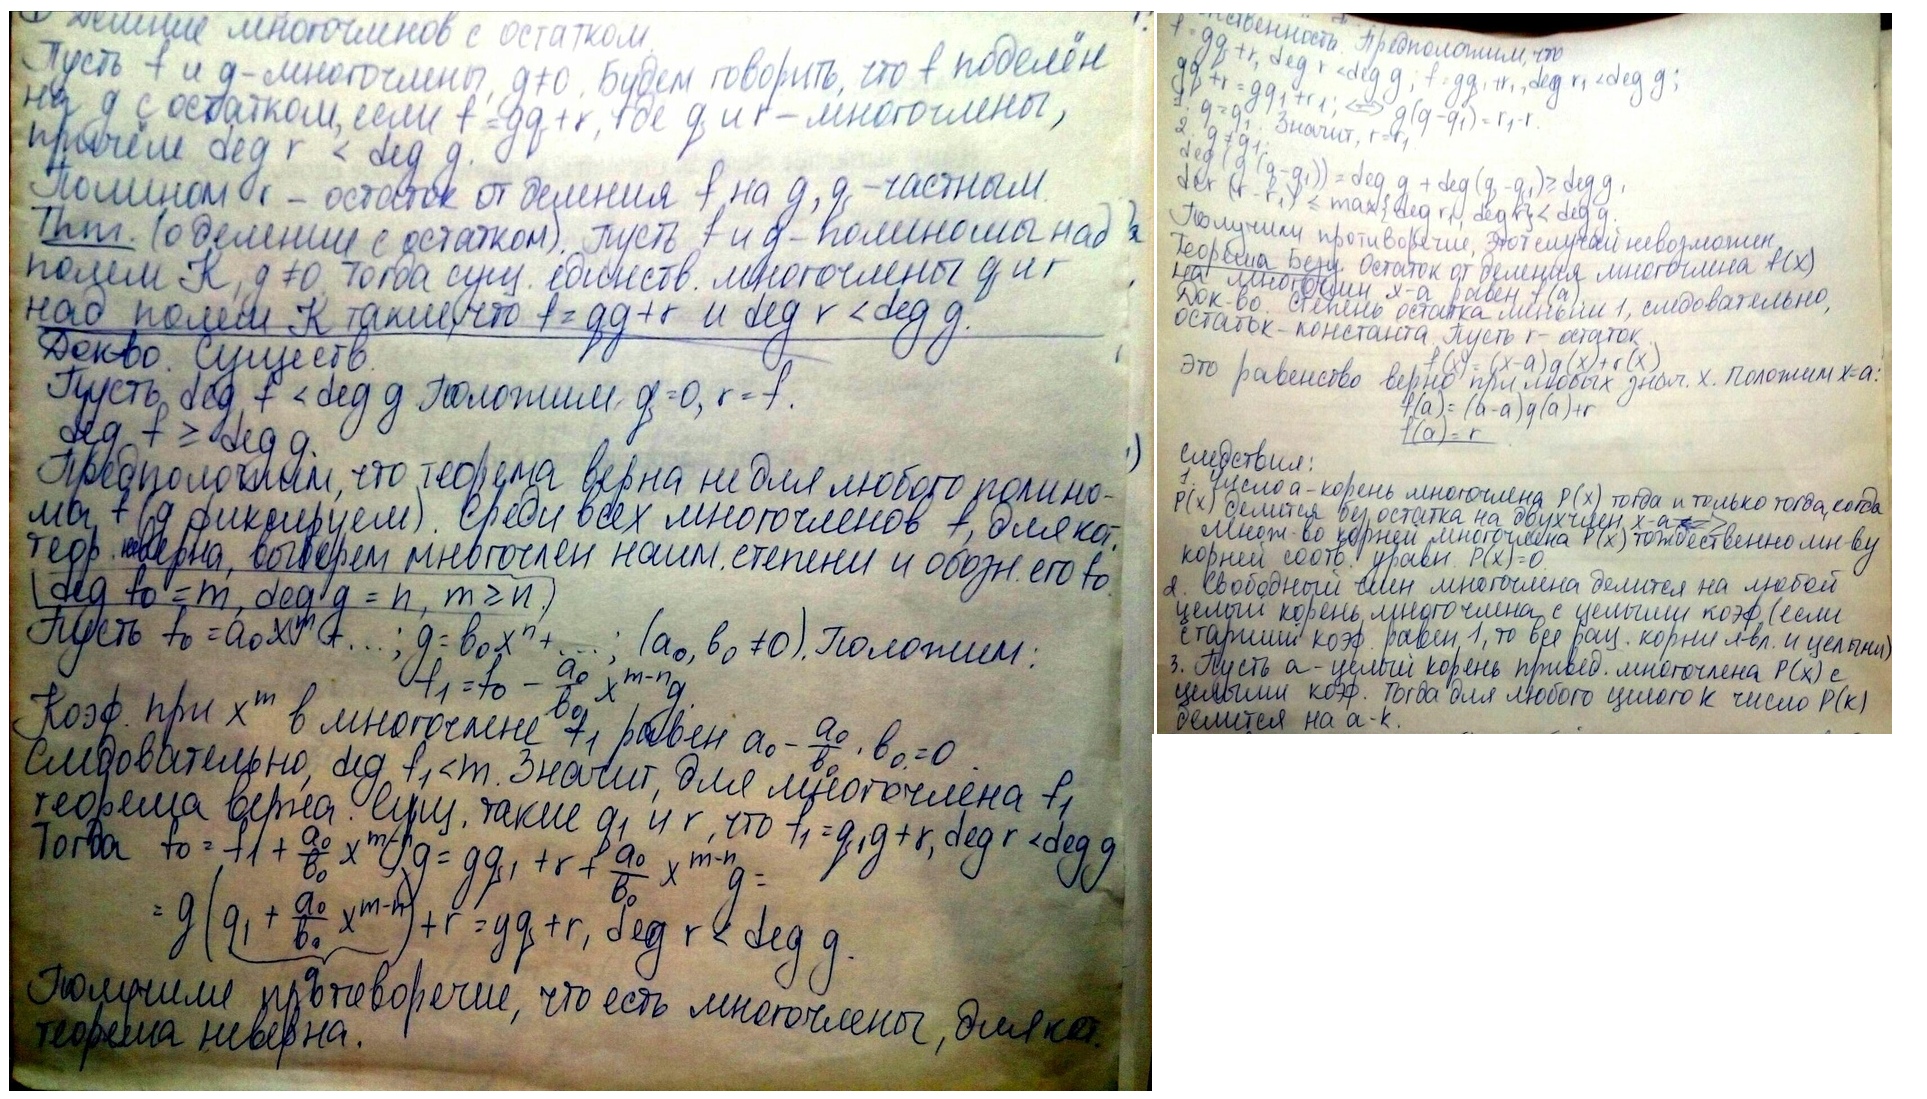 Деление многочленов с остатком.
Пусть f и g – многочлены, g≠0. Будем говорить, что f поделён
на g с остатком, если f = gq + r, где q и r – многочлены,
причём deg r < deg g.
Полином r – остаток от деления f на g, q – частным.
Thm. (о делении с остатком). Пусть f и g – полиномы над
полем K, g ≠0. Тогда сущ. единств. многочлены q и r
над полем K такие, что f = gq + r и deg r < deg g.
Док-во. Существ.
Пусть deg f < deg g Положим q = 0, r = f.
deg f ≥ deg g.
Предположим, что теорема верна не для любого полино-
ма f (g фиксируем). Среди всех многочленов f, для кот.
теор. неверна, выберем многочлен наим. степени и обозн. его f₀.
(deg f₀ = m, deg g = n, m ≥ n.)
Пусть f₀ = a₀x^m + ...; g = b₀x^n + ...; (a₀, b₀ ≠0). Положим:
f₁ = f₀ – a₀/b₀ x^(m-n) g.
Коэф. при x^m в многочлене f₁ равен a₀ – a₀/b₀ · b₀ = 0.
Следовательно, deg f₁ < m. Значит, для многочлена f₁
теорема верна. Сущ. такие q₁ и r, что f₁ = q₁g + r, deg r < deg g
Тогда f₀ = f₁ + a₀/b₀ x^(m-n) g = gq₁ + r + a₀/b₀ x^(m-n) g =
= g(q₁ + a₀/b₀ x^(m-n)) + r = gq + r, deg r < deg g.
q
Получили противоречие, что есть многочлены, для кот.
теорема неверна.
Предположим, что
f = gq + r, deg r < deg g; f = gq₁ + r₁, deg r₁ < deg g;
gq + r = gq₁ + r₁; <=> g(q – q₁) = r₁ – r.
1. q = q₁. Значит, r = r₁.
2. q ≠ q₁.
deg(g(q – q₁)) = deg g + deg(q – q₁) ≥ deg g,
der (r – r₁) ≤ max{deg r₁, deg r} < deg g.
Получили противоречие, этот случай невозможен.
Теорема Безу. Остаток от деления многочлена f(x)
на многочлен x-a равен f(a).
Док-во. Степень остатка меньш 1, следовательно,
остаток – константа. Пусть r – остаток.
f(x) = (x-a)q(x) + r(x)
Это равенство верно при любых знач. x. Положим x=a:
f(a) = (a-a)q(a)+r
f(a) = r
Следствия:
1. Число a – корень многочлена P(x) тогда и только тогда, когда
P(x) делится без остатка на двухчлен x-a
Множ-во корней многочлена P(x) тождественно мн-ву
корней соотв. уравн. P(x)=0.
2. Свободный член многочлена делится на любой
целый корень многочлена с целыми коэф. (если
старший коэф. равен 1, то все рац. корни явл. и целыми)
3. Пусть a – целый корень привед. многочлена P(x) с
целыми коэф. Тогда для любого целого k число P(k)
делится на a-k.